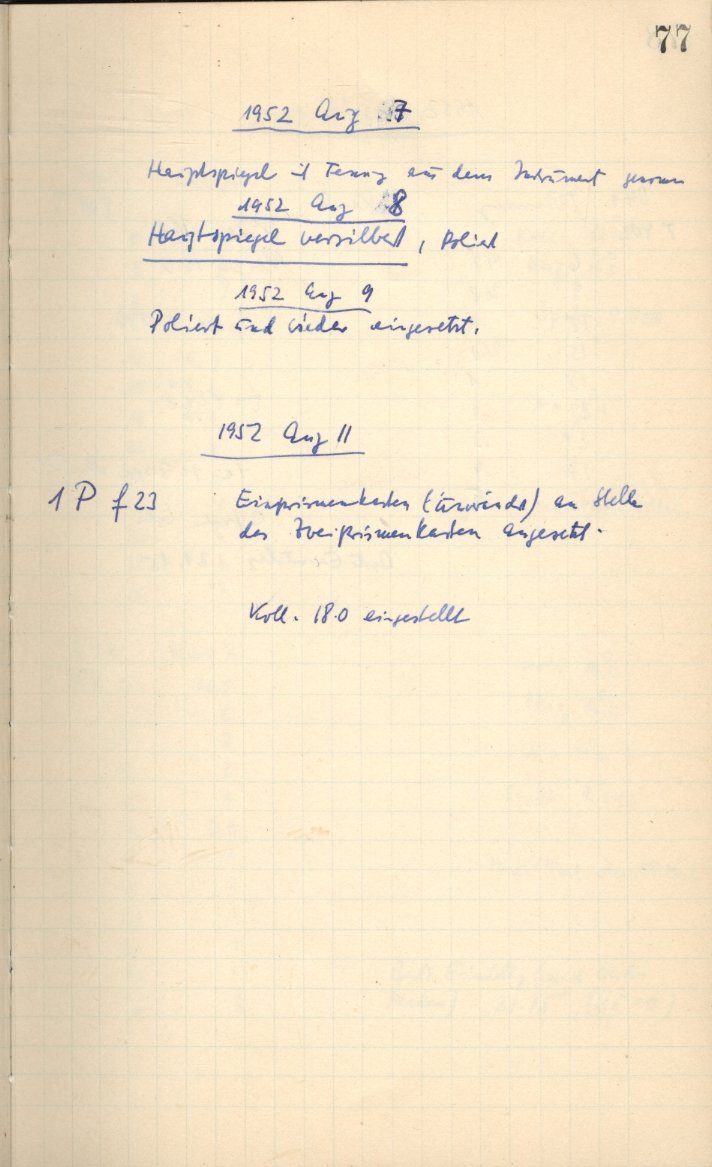 77
1952 Aug 7
Hauptspiegel mit Fassung aus dem Instrument genommen
1952 Aug 8
Hauptspiegel versilbert, Poliert
1952 Aug 9
Poliert und wieder eingesetzt.
1952 Aug 11
1 P f 23 Einprismenkasten ( ) an Stelle
des Zweiprismenkasten angesetzt.
Koll. 18.0 eingestellt